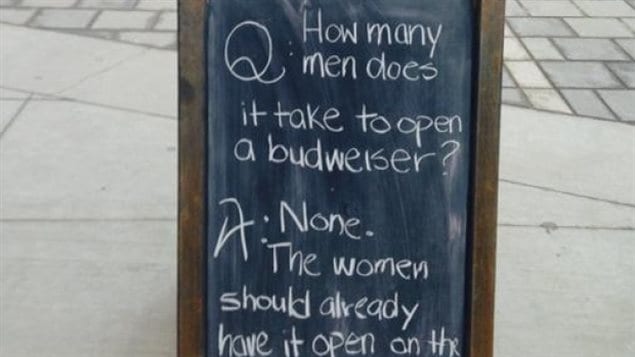 Q: How many
men does
it take to open
a budweiser?
A: None.
The women
should already
have it open on the